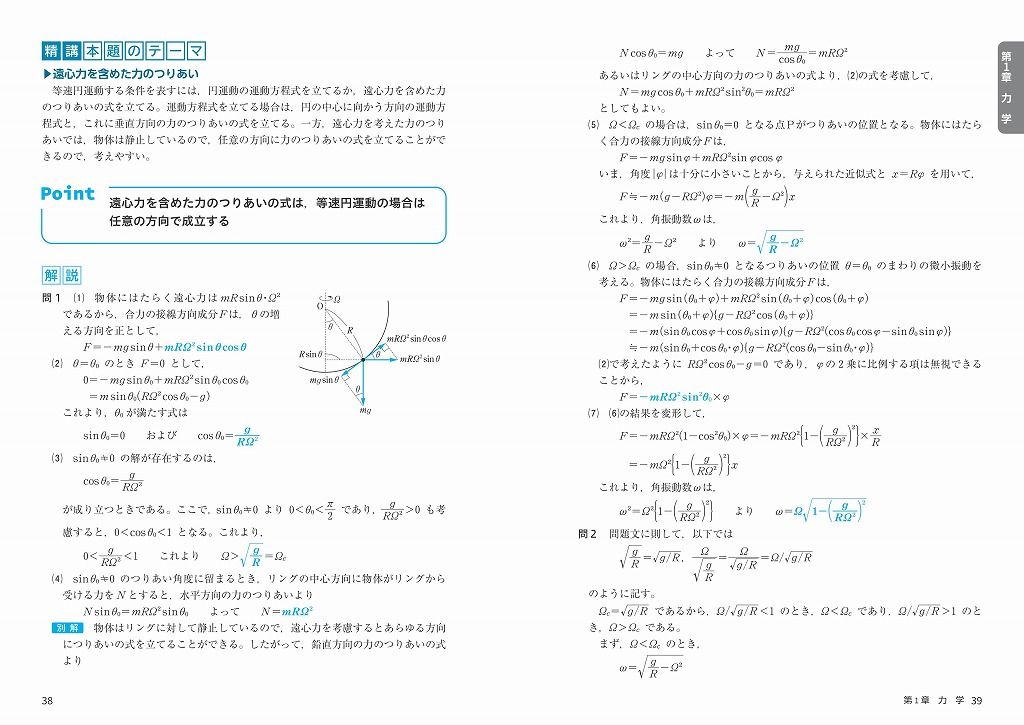 精講 本題のテーマ
▶遠心力を含めた力のつりあい
等速円運動する条件を表すには，円運動の運動方程式を立てるか，遠心力を含めた力
のつりあいの式を立てる。運動方程式を立てる場合は，円の中心に向かう方向の運動方
程式と，これに垂直方向の力のつりあいの式を立てる。一方，遠心力を考えた力のつり
あいでは，物体は静止しているので，任意の方向に力のつりあいの式を立てることがで
きるので，考えやすい。
Point
遠心力を含めた力のつりあいの式は，等速円運動の場合は
任意の方向で成立する
解説
問1 (1) 物体にはたらく遠心力は mRsinθ･Ω²
であるから，合力の接線方向成分Fは，θの増
える方向を正として，
F=−mgsinθ+mRΩ²sinθcosθ
(2) θ=θ₀ のとき F=0 として，
0=−mgsinθ₀+mRΩ²sinθ₀cosθ₀
=msinθ₀(RΩ²cosθ₀−g)
これより，θ₀が満たす式は
sinθ₀=0 および cosθ₀=g/RΩ²
Ω
O
θ
R
Rsinθ
mRΩ²sinθcosθ
θ
mRΩ²sinθ
mgsinθ
θ
mg
(3) sinθ₀≠0 の解が存在するのは，
cosθ₀=g/RΩ²
が成り立つときである。ここで，sinθ₀≠0 より 0<θ₀<π/2 であり，g/RΩ²>0 も考
慮すると，0<cosθ₀<1 となる。これより，
0<g/RΩ²<1 これより Ω>√(g/R)=Ωc
(4) sinθ₀≠0 のつりあい角度に留まるとき，リングの中心方向に物体がリングから
受ける力をNとすると，水平方向の力のつりあいより
Nsinθ₀=mRΩ²sinθ₀ よって N=mRΩ²
別解 物体はリングに対して静止しているので，遠心力を考慮するとあらゆる方向
につりあいの式を立てることができる。したがって，鉛直方向の力のつりあいの式
より
38
Ncosθ₀=mg よって N=mg/cosθ₀=mRΩ²
あるいはリングの中心方向の力のつりあいの式より，(2)の式を考慮して，
N=mgcosθ₀+mRΩ²sin²θ₀=mRΩ²
としてもよい。
(5) Ω<Ωc の場合は，sinθ₀=0 となる点Pがつりあいの位置となる。物体にはたら
く合力の接線方向成分Fは，
F=−mgsinφ+mRΩ²sinφcosφ
いま，角度|φ|は十分に小さいことから，与えられた近似式と x=Rφ を用いて，
F≒−m(g−RΩ²)φ=−m(g/R−Ω²)x
これより，角振動数ωは，
ω²=g/R−Ω² より ω=√(g/R−Ω²)
(6) Ω>Ωc の場合，sinθ₀≠0 となるつりあいの位置 θ=θ₀ のまわりの微小振動を
考える。物体にはたらく合力の接線方向成分Fは，
F=−mgsin(θ₀+φ)+mRΩ²sin(θ₀+φ)cos(θ₀+φ)
=−msin(θ₀+φ){g−RΩ²cos(θ₀+φ)}
=−m(sinθ₀cosφ+cosθ₀sinφ){g−RΩ²(cosθ₀cosφ−sinθ₀sinφ)}
≒−m(sinθ₀+cosθ₀･φ){g−RΩ²(cosθ₀−sinθ₀･φ)}
(2)で考えたように RΩ²cosθ₀−g=0 であり，φの2乗に比例する項は無視できる
ことから，
F=−mRΩ²sin²θ₀×φ
(7) (6)の結果を変形して，
F=−mRΩ²(1−cos²θ₀)×φ=−mRΩ²{1−(g/RΩ²)²}×x/R
=−mΩ²{1−(g/RΩ²)²}x
これより，角振動数ωは，
ω²=Ω²{1−(g/RΩ²)²} より ω=Ω√(1−(g/RΩ²)²)
問2 問題文に則して，以下では
√(g/R)=√g/R，Ω/√(g/R)=Ω/√g/R=Ω/√g/R
のように記す。
Ωc=√g/R であるから，Ω/√g/R<1 のとき，Ω<Ωc であり，Ω/√g/R>1 のと
き，Ω>Ωc である。
まず，Ω<Ωc のとき，
ω=√(g/R−Ω²)
第1章 力 学
第1章 力 学 39